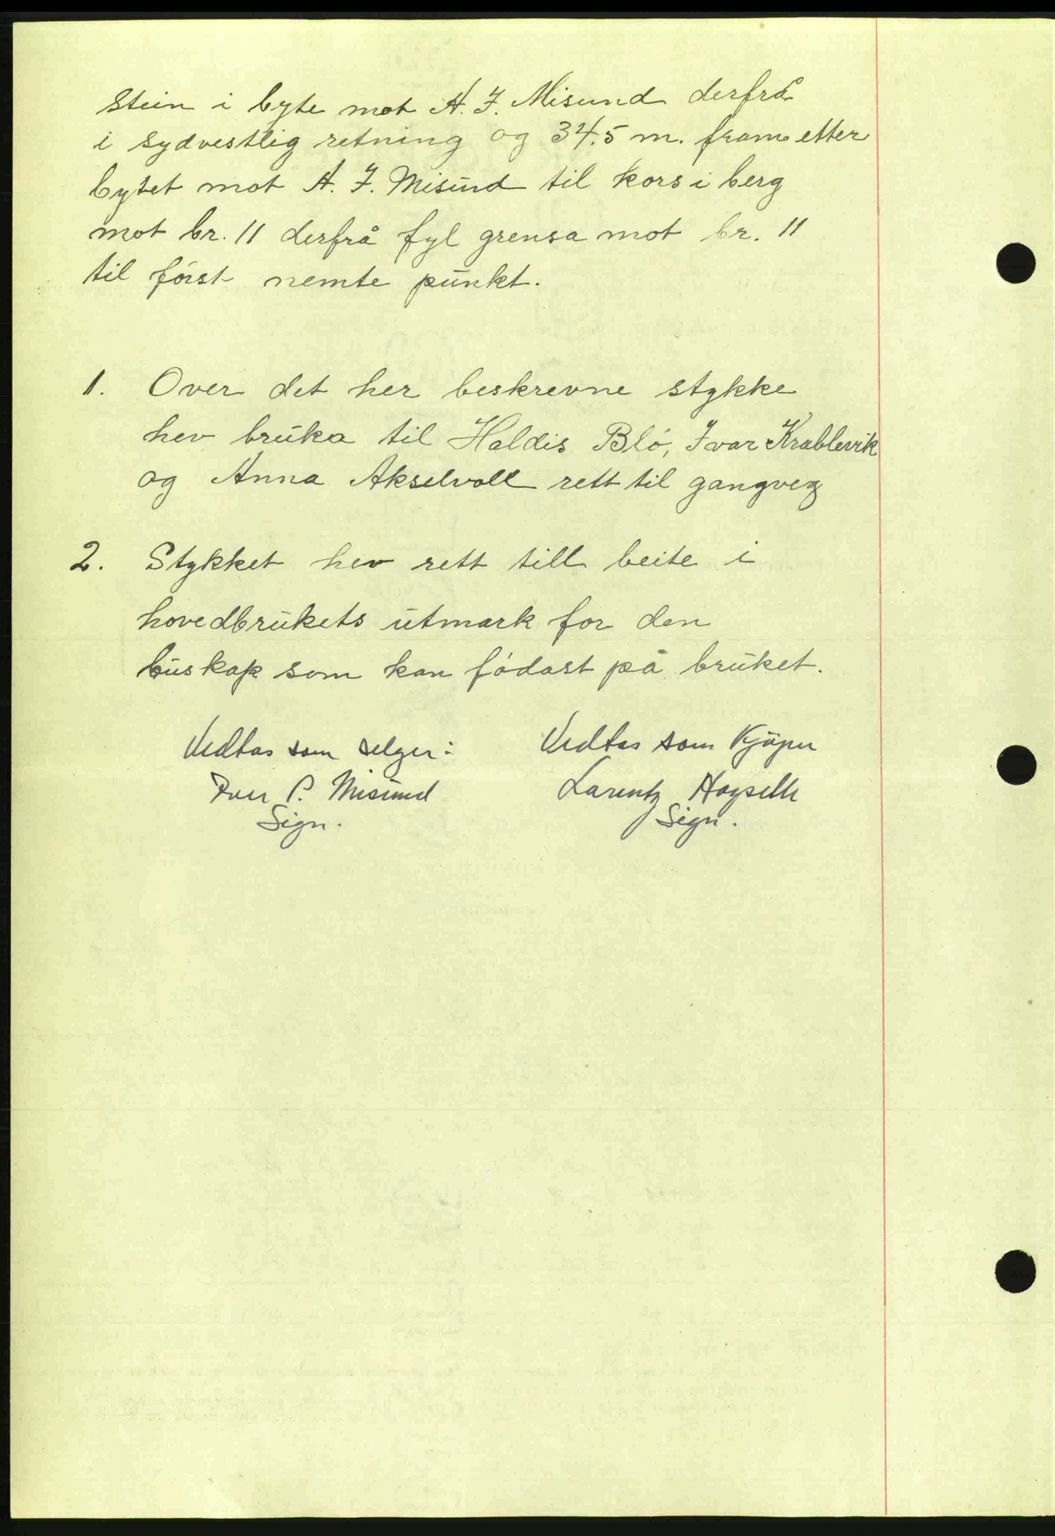 stein i byte mot A. J. Misund derfrå
i sydvestlig retning og 34.5 m. fram etter
bytet mot A. J. Misund til kors i berg
mot br. 11 derfrå fyl grensa mot br. 11
til först nemte punkt.
1. Over det her beskrevne stykke
hev bruka til Haldis Blö, Ivar Krablevik
og Anna Akselvoll rett til gangveg
2. Stykket hev rett till beite i
hovedbrukets utmark for den
buskap som kan födast på bruket.
Vedtas som selger: Vedtas som Kjöper
Iver P. Misund Larentz Hagseth
Sign. Sign.